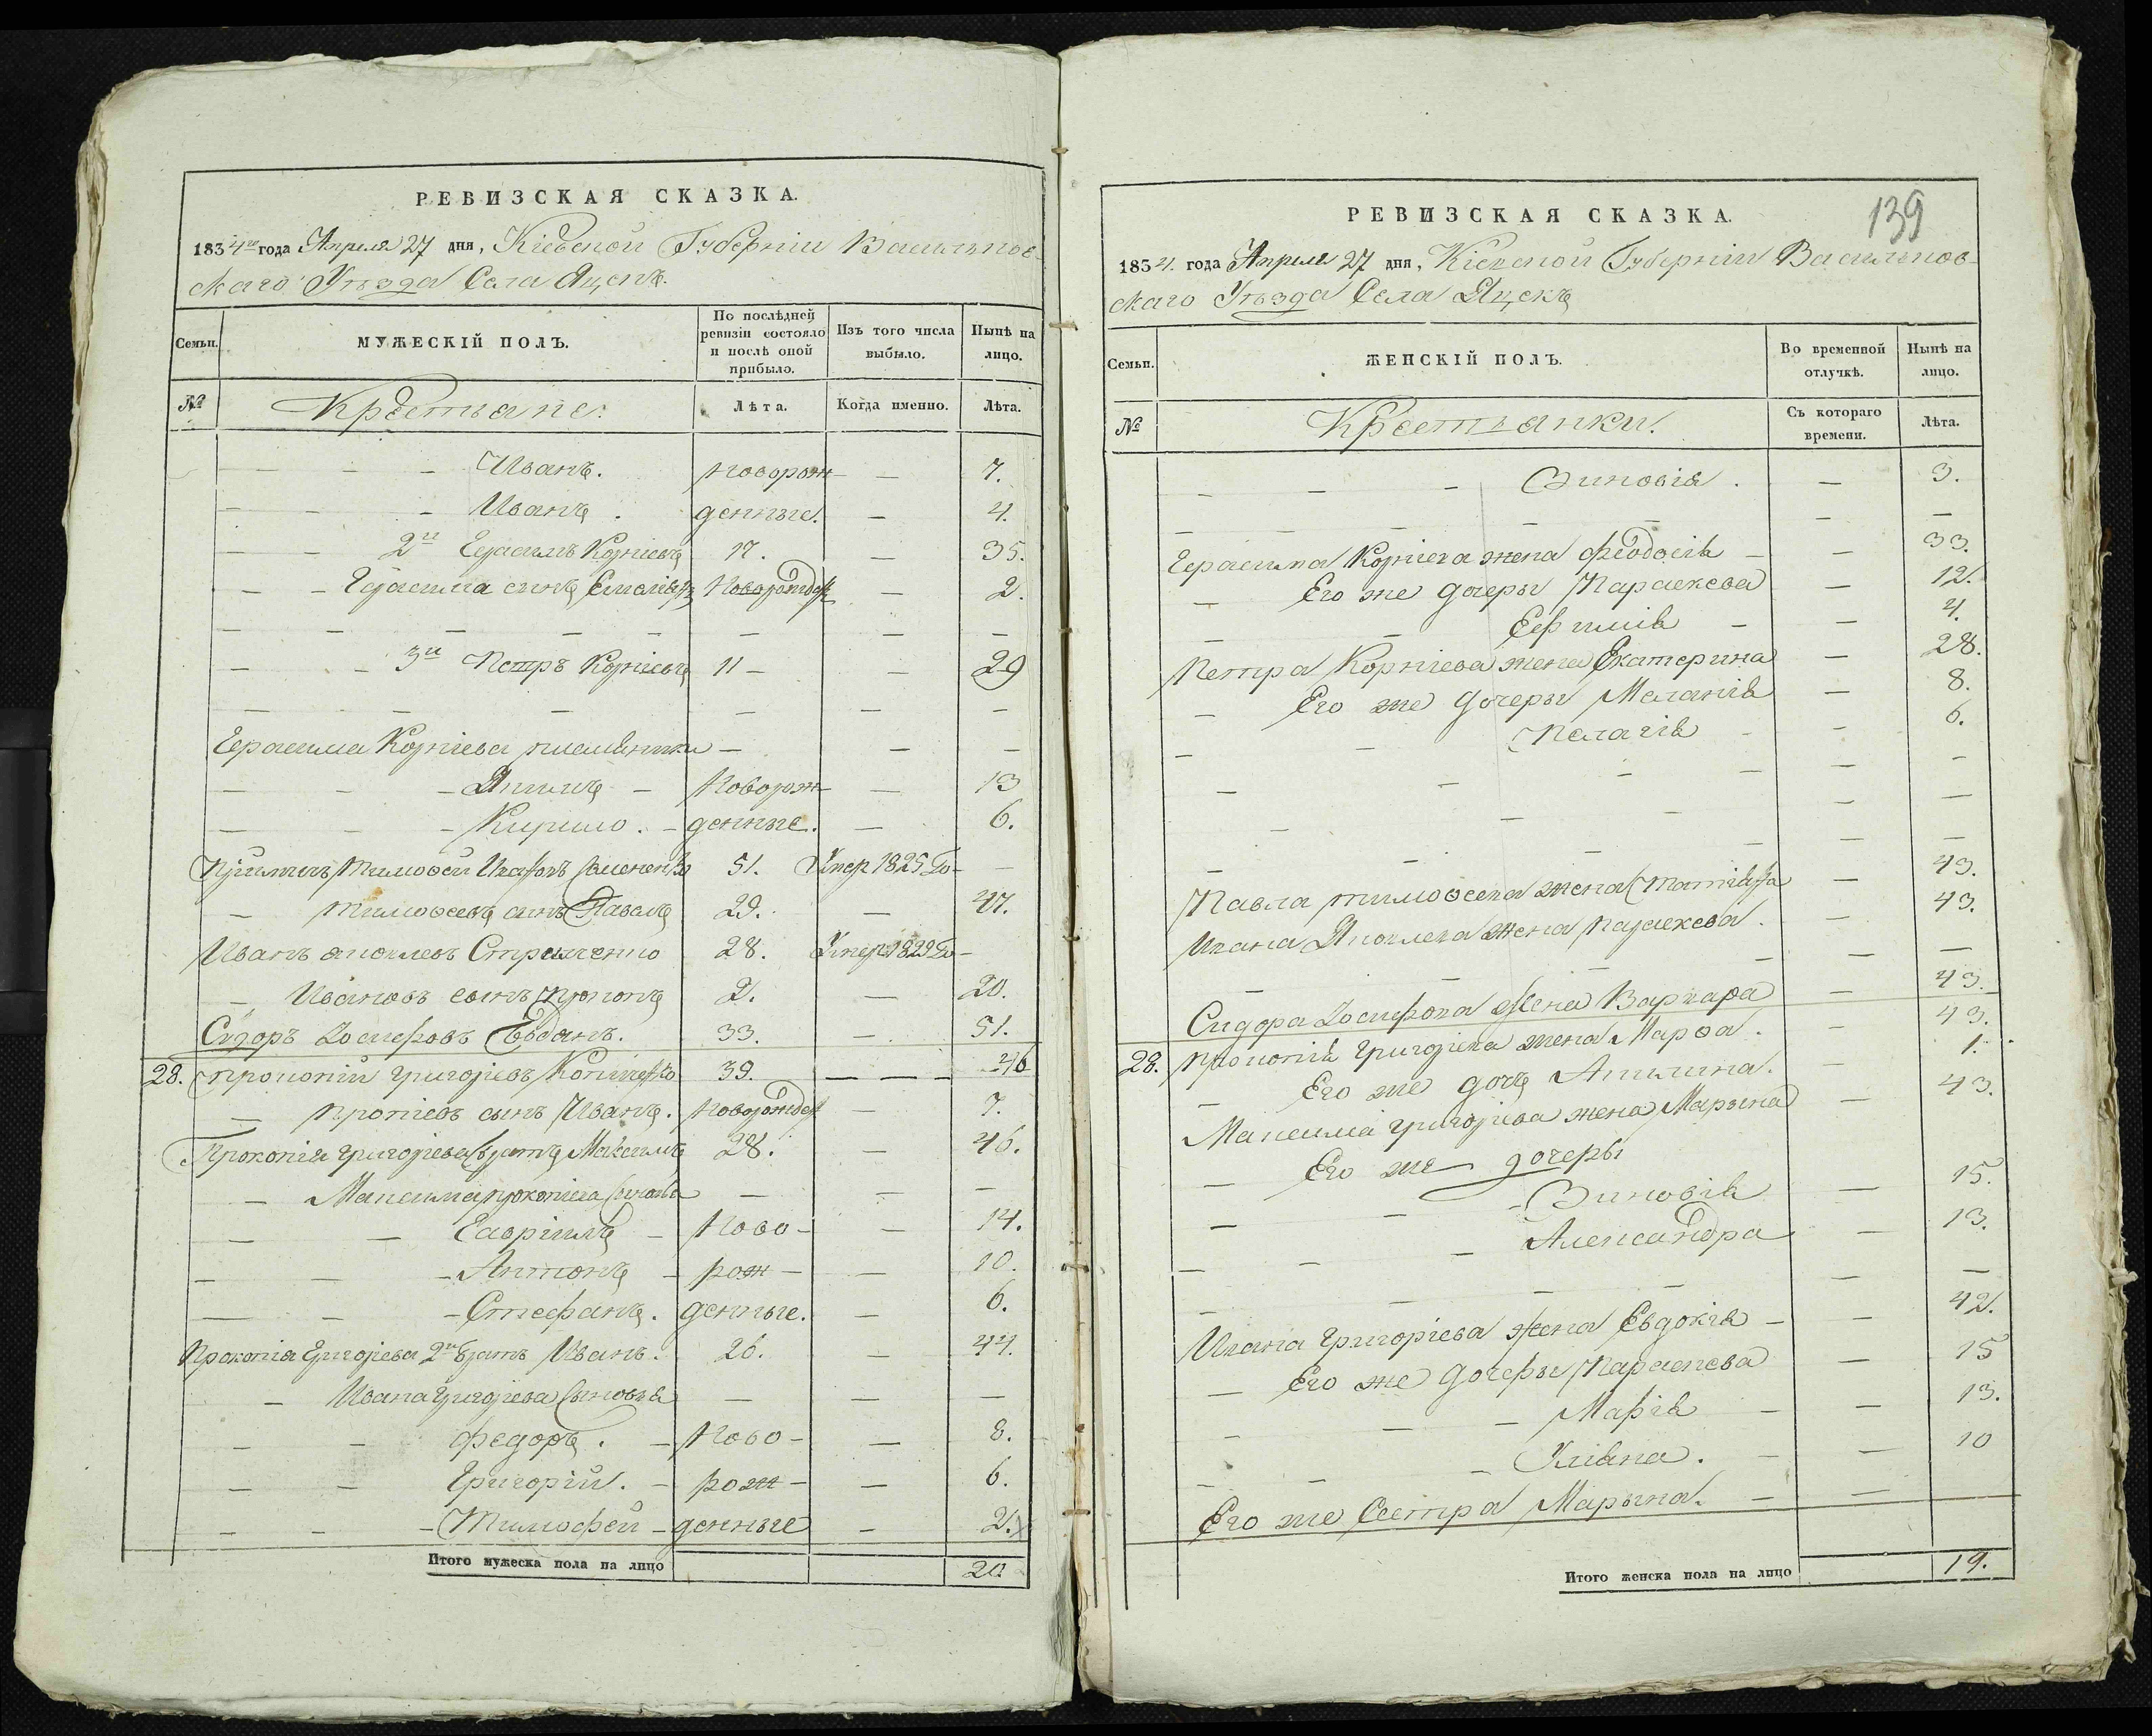 РЕВИЗСКАЯ СКАЗКА.
1834го года Апреля 27 дня, Кіевской Губерніи Васильков-
скаго Уѣзда Села Яцекъ.
Семьи. МУЖЕСКІЙ ПОЛЪ. По послѣдней ревизіи состояло и послѣ оной прибыло. Изъ того числа выбыло. Нынѣ на лицо.
№ Крестьяне. Лѣта. Когда именно. Лѣта.
— — — Иванъ. новорож- — 7.
— — — Иванъ. денные. — 4.
— — 2й Герасимъ Корніевъ 17. — 35.
— — Герасима сынъ Емеліянъ Новорожден — 2.
— — — — — — — —
— — 3й Петръ Корніевъ 11 — — 29
— — — — — — —
Герасима Корніева племянники — — —
— — — Якимъ — Новорож- — 13
— — — Кирило. — денные. — 6.
Тимофей 51. Умер 1825 Го- —
— Тимофеевъ сынъ Павелъ 29. — 47.
Иванъ Яковлевъ 28. Умер 1829 Го- —
— Ивановъ сынъ Прокопъ 2. — 20.
Сидоръ Іосифовъ 33. — 51.
28. Прокопій Григоріевъ 39. — — — 46
— Прокопіевъ сынъ Иванъ. Новорожден — 7.
Прокопія Григоріева братъ Максимъ 28. — 46.
— Максима Прокопіева сыновья — — —
— — Гавріилъ — Ново- — 14.
— — — Антонъ — рож- — 10.
— — — Стефанъ. денные. — 6.
Прокопія Григоріева 2й братъ Иванъ. 26. — 44.
— Ивана Григоріева сыновья — — —
— — Федоръ. — Ново- — 8.
— — Григорій. — рож- — 6.
— — — Тимофей — денные — 2.
Итого мужеска пола на лицо 20.
139
РЕВИЗСКАЯ СКАЗКА.
1834. года Апреля 27 дня, Кіевской Губерніи Васильков-
скаго Уѣзда Села Яцекъ
Семьи. ЖЕНСКІЙ ПОЛЪ. Во временной отлучкѣ. Нынѣ на лицо.
№ Крестьянки. Съ котораго времени. Лѣта.
— — — Зиновія. — 3.
— — — — — — —
Герасима Корніева жена Феодосія — — 33.
— Его же дочеры Параскева — 12.
— — Ефимія — — 4.
Петра Корніева жена Екатерина — 28.
— Его же дочеры Меланія — 8.
— — Пелагія — — 6.
— — — — — —
— — — — —
— — — — —
Павла Тимофеева жена — 43.
Ивана Яковлева жена Параскева. — 43.
— — — — —
Сидора Іосифова жена Варвара — 43.
28. Прокопія Григоріева жена Марфа. — 43.
— Его же дочь Акилина. — 1.
Максима Григоріева жена Марына — 43.
— Его же дочеры
— — — Зиновія — 15.
— — — Александра — 13.
— — — — — —
Ивана Григоріева жена Евдокія — — 42.
— Его же дочеры Параскева — 15
— — — Марія — — 13.
— — — Уліяна. — — 10
Его же Сестра Марына. — —
Итого женска пола на лицо 19.